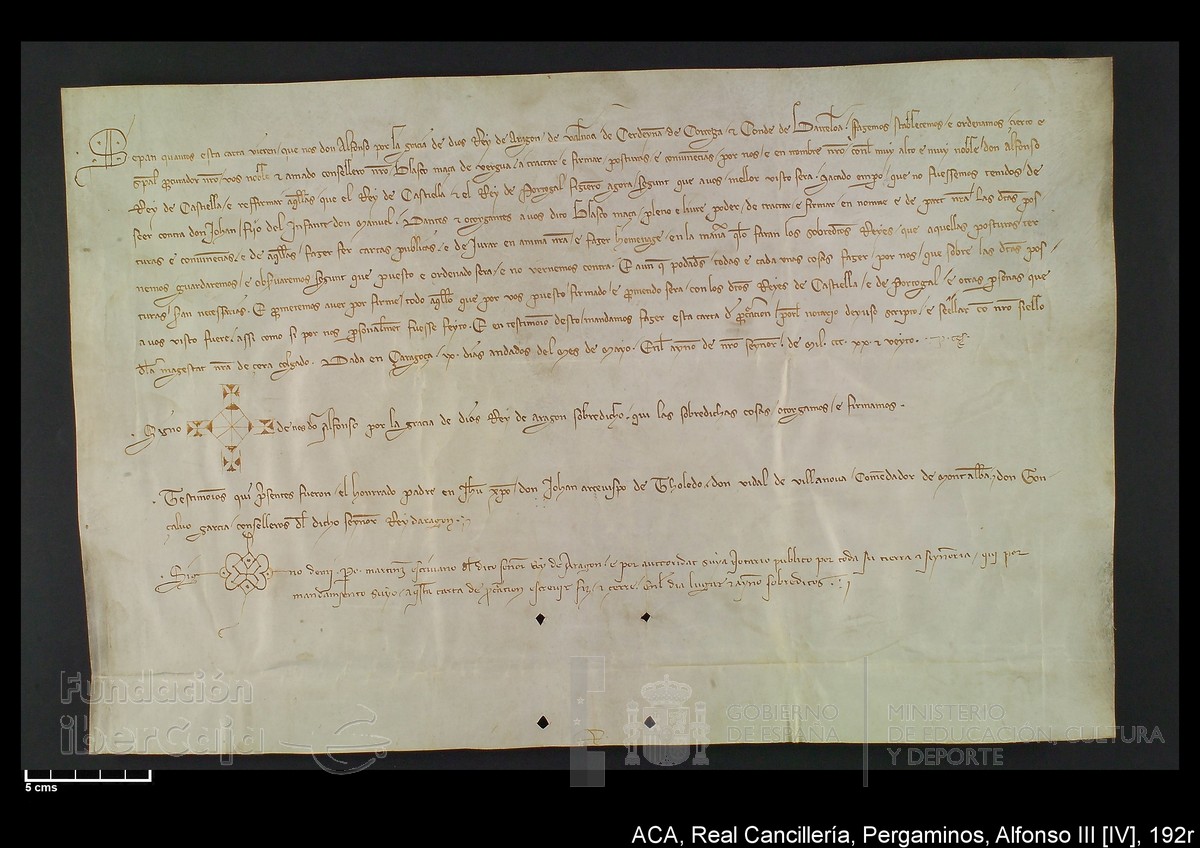 Sepan quantos esta carta vieren, que nos don Alfonso por la gracia de dios Rey de Aragon, de Valencia de Cerdeynna de Corcega, et Conde de Barcelona, fagemos stablecemos e ordenamos cierto e
gñral procurador nro, vos noble et amado consellero nro, Blasco maça de vergua, a tractar e firmar posturas, e conuinencias, por nos, e en nombre nro, conel muy alto e muy noble, don alfonso
Rey de Castiella, e reffirmar aqllas que el Rey de Castiella, et el Rey de Portogal fizieron agora, segunt que a vos, mellor visto sera, sacado empo, que no fuessemos tenidos de
seer contra don Johan, fijo del Infante don manuel. Dantes et otorgantes a vos dito Blasco maça, pleno e liure poder, de tractar, e firmar en nomne e de part nra, las dtas pos
turas e conuinencias, e de aqllas, fazer fer cartas publicas, e de Jurar en anima nra, e fazer homenage, en la manera qlo faran los sobredtos Reyes, que aquellas posturas ter
nemos guardaremos, e obseruaremos segunt que puesto e ordenado sera, e no vernemos contra. E aun q podades, todas e cada unas cosas fazer, por nos, que sobre las dtas pos,
turas, sian necessarias. E prometemos auer por firme, todo aqllo que por vos puesto firmado, e prometido sera, con los dtos Reyes de Castiella, e de Portogal, e otras personas que
a vos visto fuere, assi como si por nos personalment fuesse feyto. E en testimonio desto, mandamos fazer esta carta d procuracion, porel notario deyuso scripto, e siellar con nro siello
dla magestat nra, de cera colgado. Dada en Caragoça, xv. dias andados del mes de mayo. Enel aynno de nro seynnor, de mil. ccc. xx. et vuyto.
Signo de nos don Alfonso por la gracia de dios Rey de aragon sobredicho, qui las sobredichas cosas otorgamos, e firmamos.
Testimonios qui presentes fueron, el hourrado padre en Jhu xpo, don Johan arçeuispo de Tholedo, don vidal de villanoua, Comendador de montalban, don Gon
çaluo garcia, conselleros dl dicho seynnor Rey daragon.
Sig no demi. Po. martinez escriuano dl dito señor Rey de Aragon, e por auctoridat suya Notario publico por toda su tierra e seynnoria, qui por
mandamiento suyo, aqsta carta de procuracion escreuir fiz, et cerre. Enel dia lugar et aynno sobreditos.
Fundación
iberCaja
GOBIERNO
DE ESPAÑA
MINISTERIO
DE EDUCACIÓN, CULTURA
Y DEPORTE
5 cms
ACA, Real Cancillería, Pergaminos, Alfonso III [IV], 192r